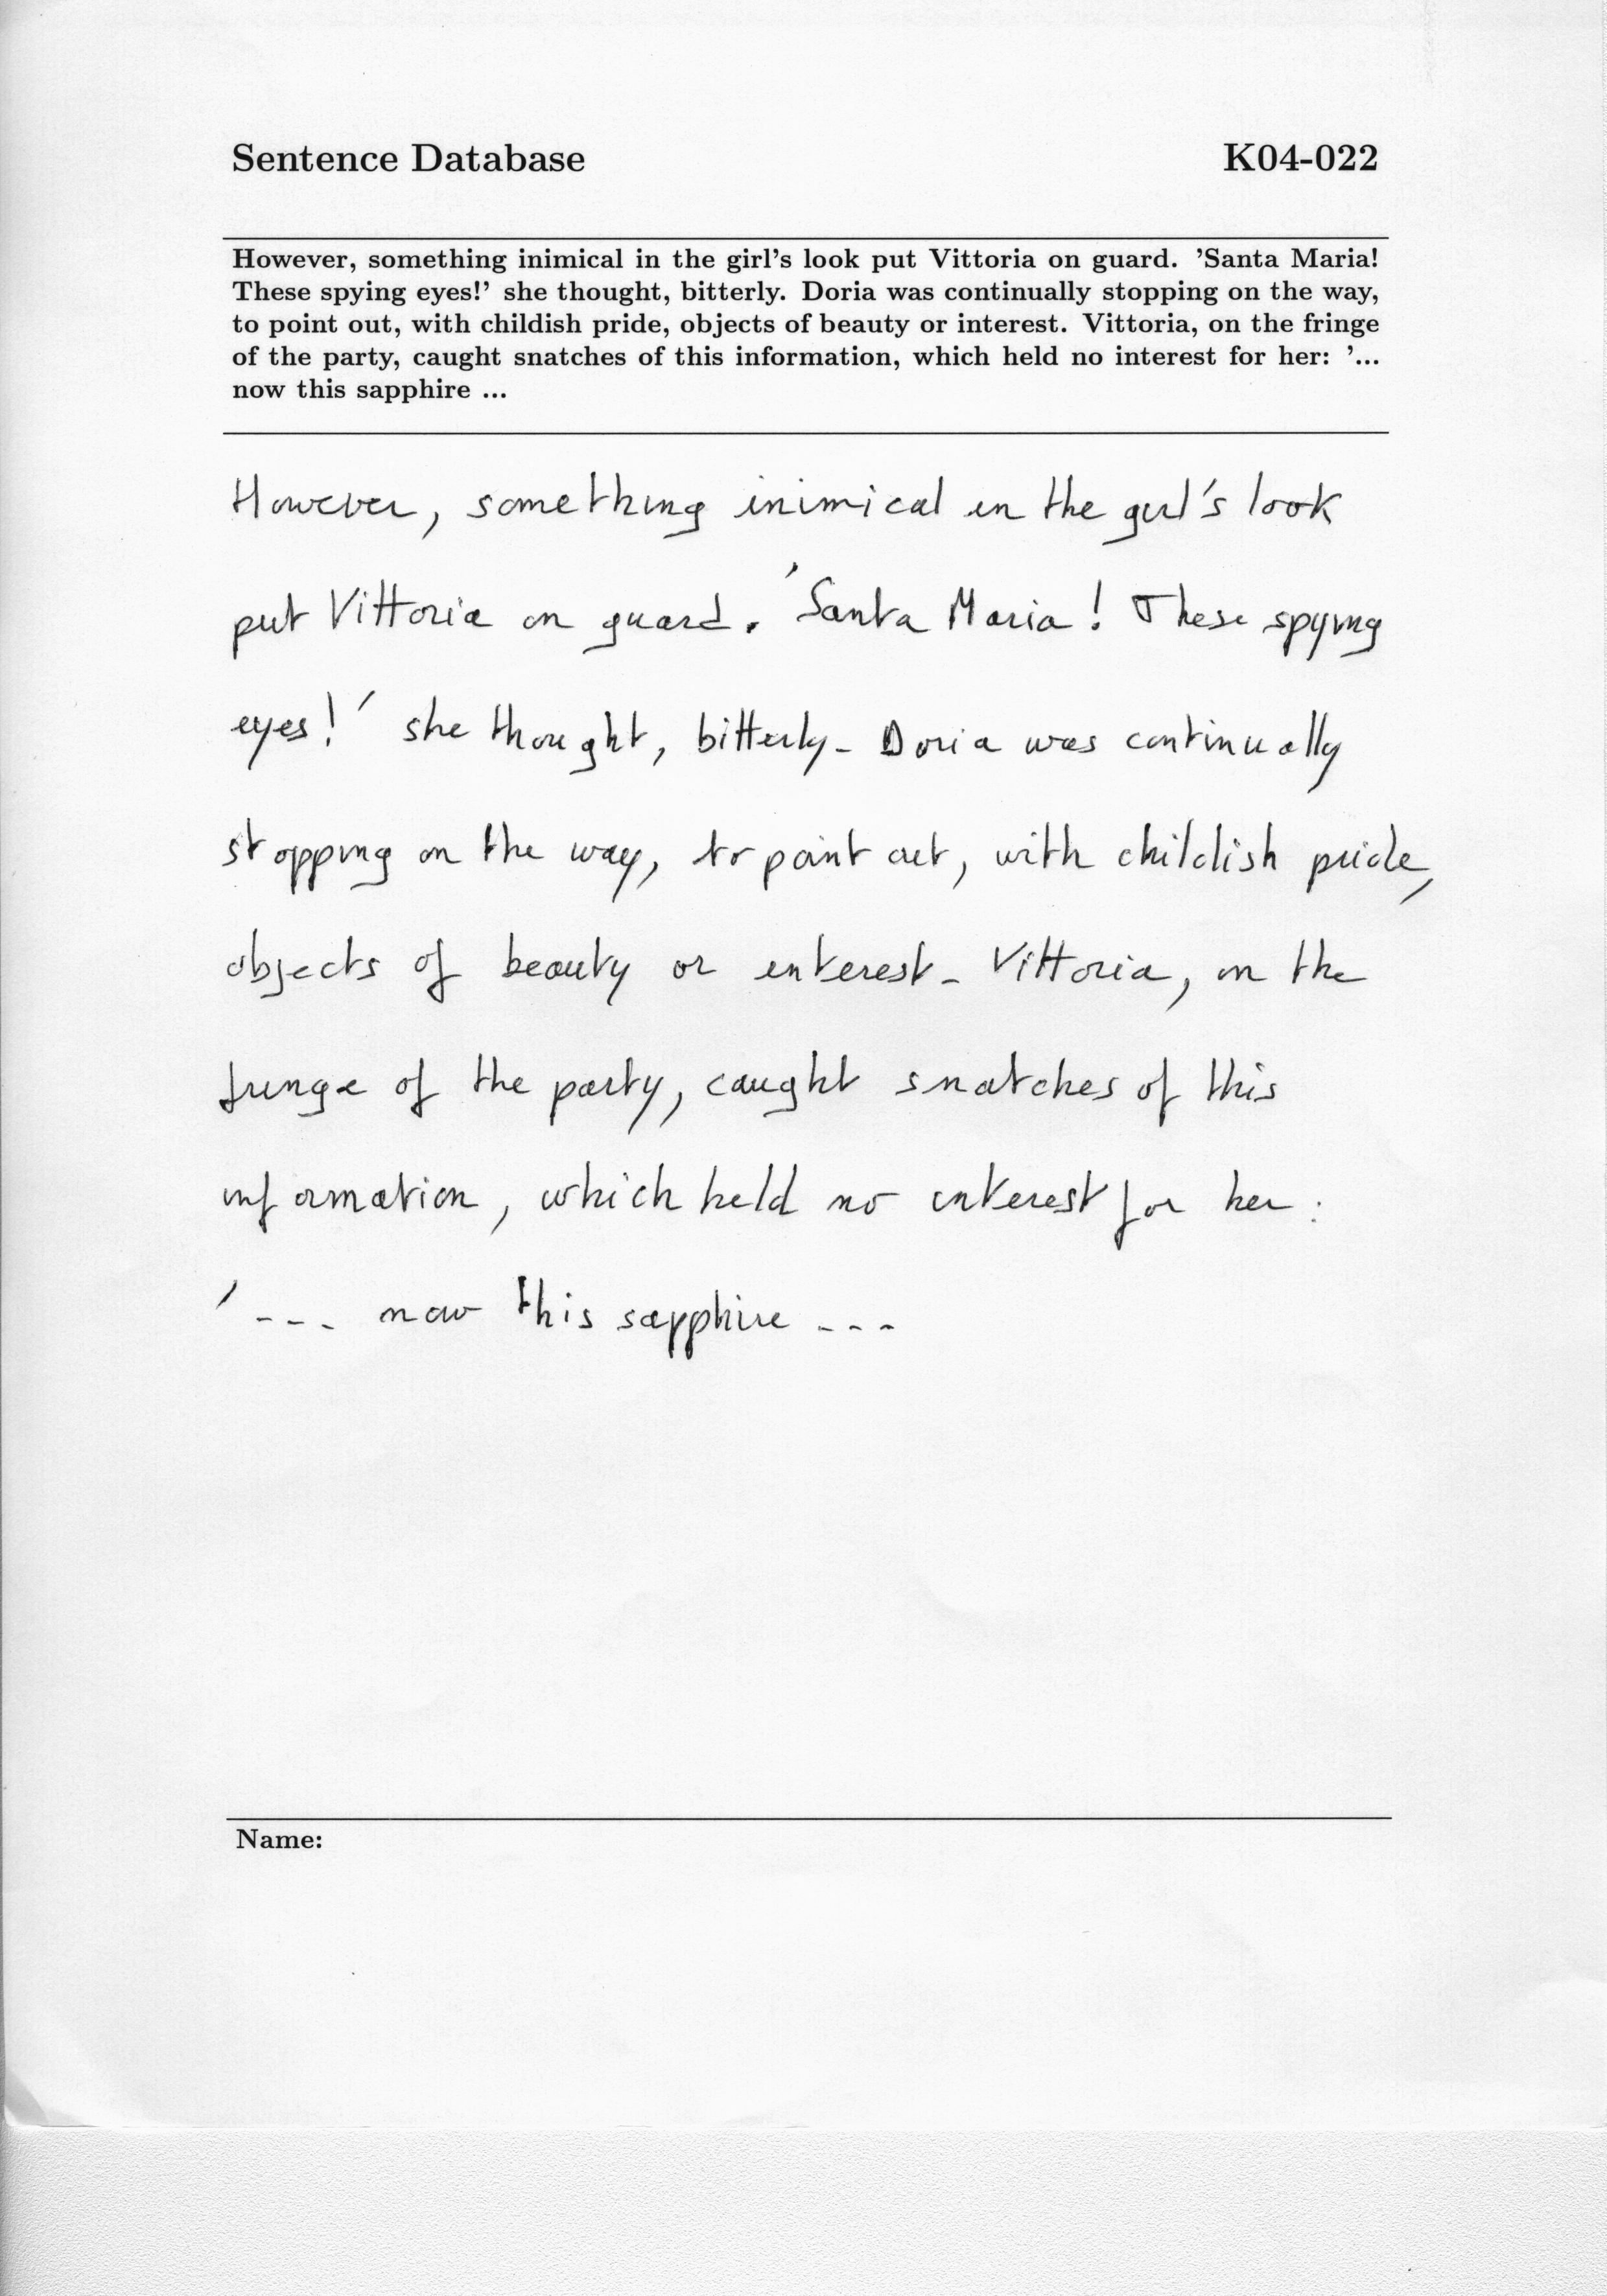 Sentence Database K04-022
However, something inimical in the girl's look put Vittoria on guard. 'Santa Maria!
These spying eyes!' she thought, bitterly. Doria was continually stopping on the way,
to point out, with childish pride, objects of beauty or interest. Vittoria, on the fringe
of the party, caught snatches of this information, which held no interest for her: '...
now this sapphire ...
However, something inimical in the girl's look
put Vittoria on guard. 'Santa Maria! These spying
eyes!' she thought, bitterly. Doria was continually
stopping on the way, to point out, with childish pride,
objects of beauty or interest. Vittoria, on the
fringe of the party, caught snatches of this
information, which held no interest for her:
'... now this sapphire ...
Name: